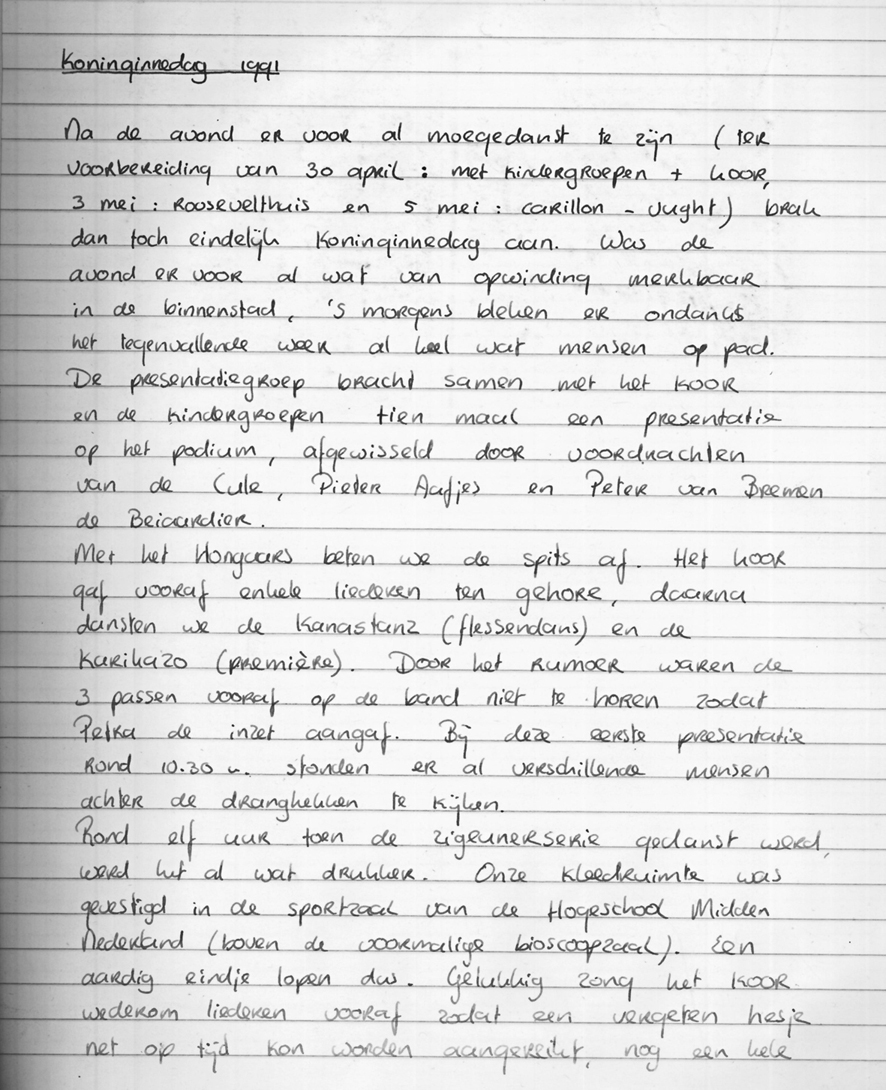 Koninginnedag 1991
Na de avond er voor al moegedanst te zijn ( ter
voorbereiding van 30 april : met kindergroepen + koor,
3 mei : Roosevelthuis en 5 mei : carillon - Vught) brak
dan toch eindelijk Koninginnedag aan. Was de
avond er voor al wat van opwinding merkbaar
in de binnenstad, 's morgens bleken er ondanks
het tegenvallende weer al heel wat mensen op pad.
De presentatiegroep bracht samen met het koor
en de kindergroepen tien maal een presentatie
op het podium, afgewisseld door voordrachten
van de Cule, Pieter Aafjes en Peter van Bremen
de Beiaardier.
Met het Hongaars beten we de spits af. Het koor
gaf vooraf enkele liederen ten gehore, daarna
dansten we de Kanastanz (flessendans) en de
Karikazo (première). Door het rumoer waren de
3 passen vooraf op de band niet te horen zodat
Petka de inzet aangaf. Bij deze eerste presentatie
rond 10.30 u. stonden er al verschillende mensen
achter de dranghekken te kijken.
Rond elf uur toen de zigeunerserie gedanst werd,
werd het al wat drukker. Onze kleedruimte was
gevestigd in de sportzaal van de Hogeschool Midden
Nederland (boven de voormalige bioscoopzaal). Een
aardig eindje lopen dus. Gelukkig zong het koor
wederom liederen vooraf zodat een vergeten hesje
net op tijd kon worden aangereikt, nog een hele